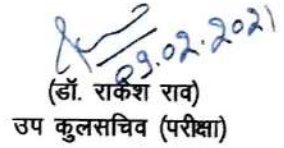 09.02.2021
(डॉ. राकेश राव)
उप कुलसचिव (परीक्षा)